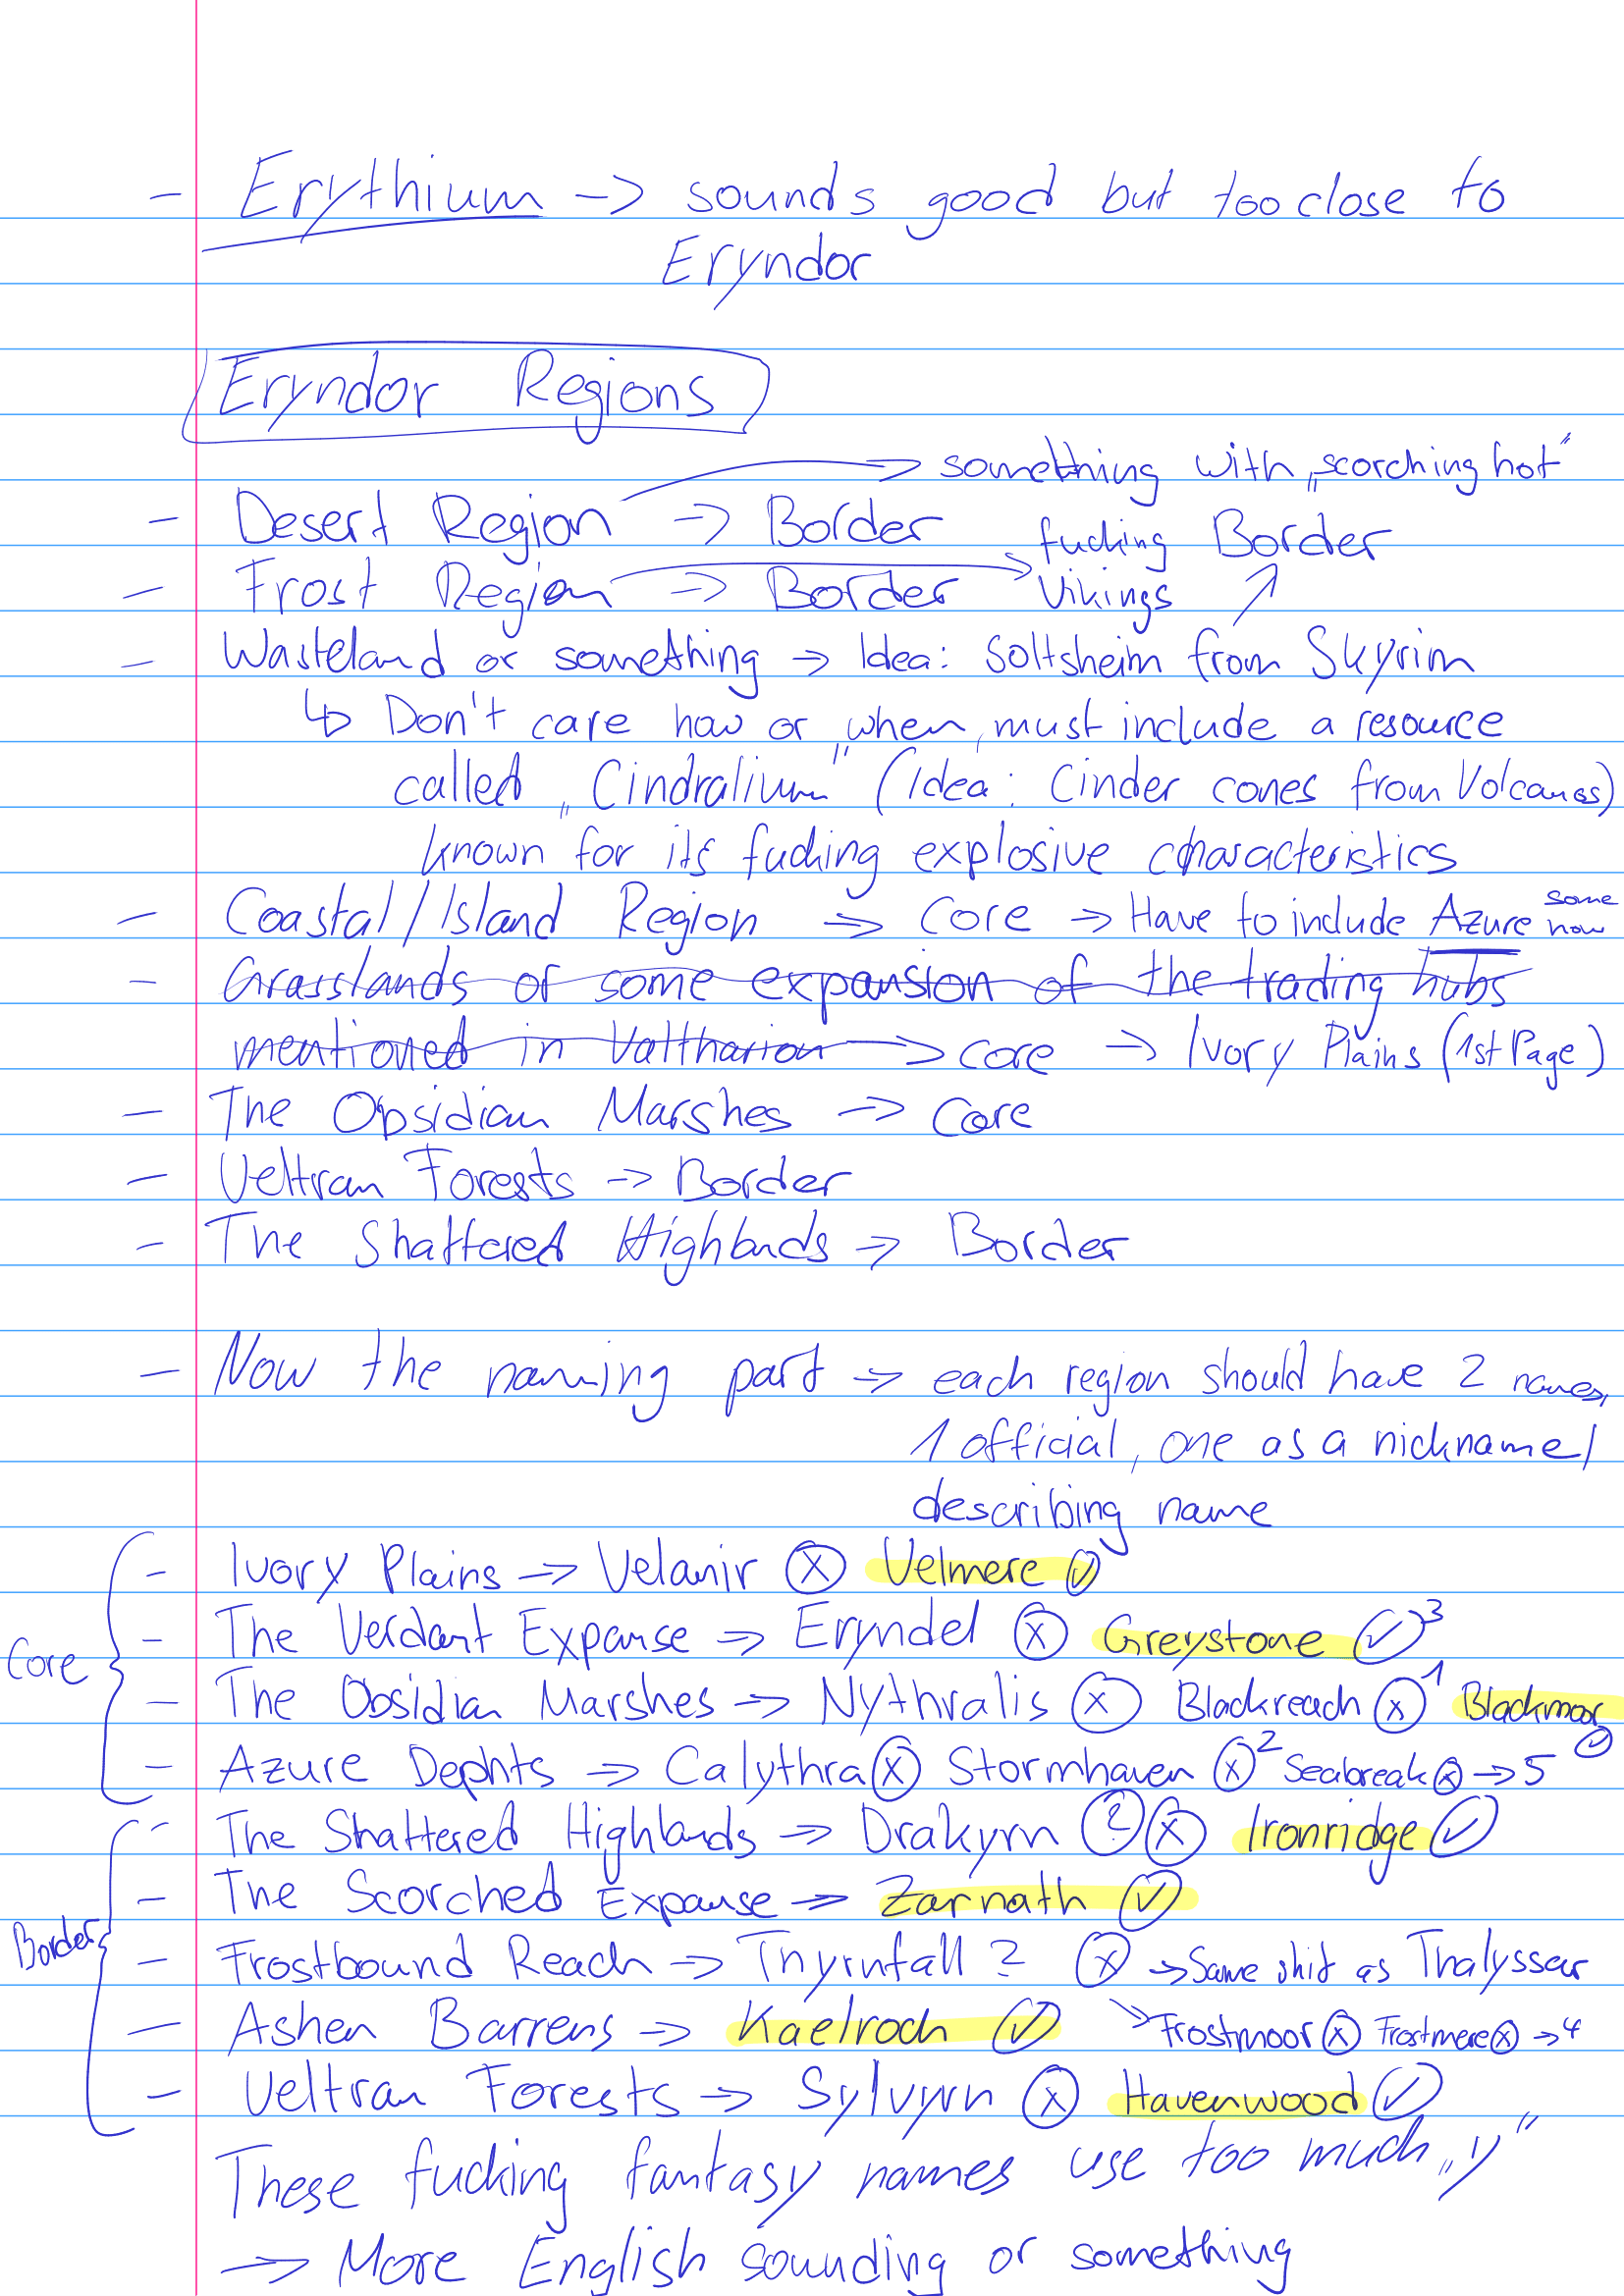 - Erythium -> sounds good but too close to
Eryndor
Eryndor Regions
-> something with „scorching hot"
- Desert Region -> Border
- Frost Region -> Border -> fucking Vikings Border
- Wasteland or something -> Idea: Soltsheim from Skyrim
↳ Don't care how or when, must include a resource
called „Cindralium" (Idea: Cinder cones from Volcanos)
known for its fucking explosive characteristics
- Coastal/Island Region -> Core -> Have to include Azure some how
- Grasslands or some expansion of the trading hubs
mentioned in Valtharion -> core -> Ivory Plains (1st Page)
- The Obsidian Marshes -> Core
- Veltran Forests -> Border
- The Shattered Highlands -> Border
- Now the naming part -> each region should have 2 names,
1 official, one as a nickname/
describing name
Core
- Ivory Plains -> Velanir ⓧ Velmere ✓
- The Verdant Expanse -> Eryndel ⓧ Greystone ✓ 3
- The Obsidian Marshes -> Nythralis ⓧ Blackreach ⓧ 1 Blackmoor ✓
- Azure Dephts -> Calythra ⓧ Stormhaven ⓧ 2 Seabreak ⓧ -> 5
Border
- The Shattered Highlands -> Drakyrn ? ⓧ Ironridge ✓
- The Scorched Expanse -> Zarnath ✓
- Frostbound Reach -> Thyrnfall ? ⓧ -> Same shit as Thalyssar
- Ashen Barrens -> Kaelroch ✓ -> Frostmoor ⓧ Frostmere ⓧ -> 4
- Veltran Forests -> Sylvyrn ⓧ Havenwood ✓
These fucking fantasy names use too much „y"
-> More English sounding or something